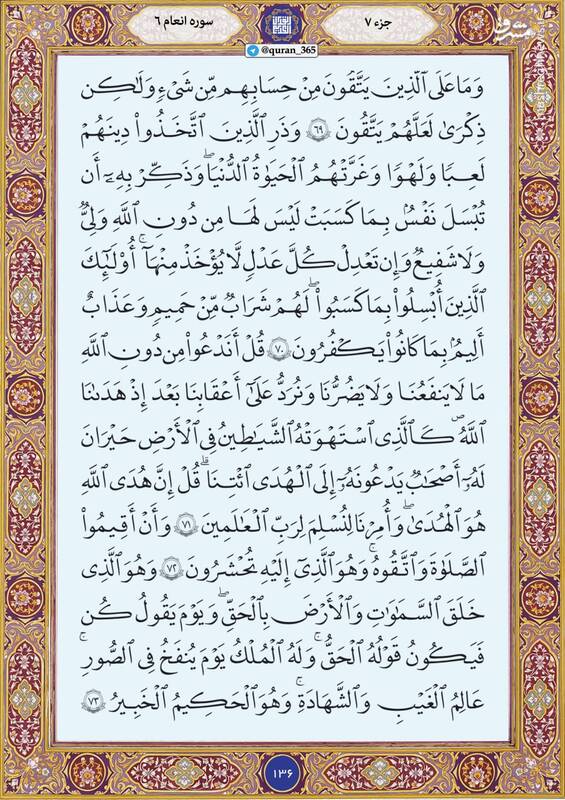 جزء ۷
سوره انعام ۶
مشرق
@quran_365
وَمَا عَلَى ٱلَّذِينَ يَتَّقُونَ مِنْ حِسَابِهِم مِّن شَىْءٍ وَلَٰكِن
ذِكْرَىٰ لَعَلَّهُمْ يَتَّقُونَ ۶۹ وَذَرِ ٱلَّذِينَ ٱتَّخَذُوا۟ دِينَهُمْ
لَعِبًا وَلَهْوًا وَغَرَّتْهُمُ ٱلْحَيَوٰةُ ٱلدُّنْيَا ۚ وَذَكِّرْ بِهِۦٓ أَن
تُبْسَلَ نَفْسٌۢ بِمَا كَسَبَتْ لَيْسَ لَهَا مِن دُونِ ٱللَّهِ وَلِىٌّ
وَلَا شَفِيعٌ وَإِن تَعْدِلْ كُلَّ عَدْلٍ لَّا يُؤْخَذْ مِنْهَآ ۗ أُو۟لَٰٓئِكَ
ٱلَّذِينَ أُبْسِلُوا۟ بِمَا كَسَبُوا۟ ۖ لَهُمْ شَرَابٌ مِّنْ حَمِيمٍ وَعَذَابٌ
أَلِيمٌۢ بِمَا كَانُوا۟ يَكْفُرُونَ ۷۰ قُلْ أَنَدْعُوا۟ مِن دُونِ ٱللَّهِ
مَا لَا يَنفَعُنَا وَلَا يَضُرُّنَا وَنُرَدُّ عَلَىٰٓ أَعْقَابِنَا بَعْدَ إِذْ هَدَىٰنَا
ٱللَّهُ كَٱلَّذِى ٱسْتَهْوَتْهُ ٱلشَّيَٰطِينُ فِى ٱلْأَرْضِ حَيْرَانَ
لَهُۥٓ أَصْحَٰبٌ يَدْعُونَهُۥٓ إِلَى ٱلْهُدَى ٱئْتِنَا ۗ قُلْ إِنَّ هُدَى ٱللَّهِ
هُوَ ٱلْهُدَىٰ ۖ وَأُمِرْنَا لِنُسْلِمَ لِرَبِّ ٱلْعَٰلَمِينَ ۷۱ وَأَنْ أَقِيمُوا۟
ٱلصَّلَوٰةَ وَٱتَّقُوهُ ۚ وَهُوَ ٱلَّذِىٓ إِلَيْهِ تُحْشَرُونَ ۷۲ وَهُوَ ٱلَّذِى
خَلَقَ ٱلسَّمَٰوَٰتِ وَٱلْأَرْضَ بِٱلْحَقِّ ۖ وَيَوْمَ يَقُولُ كُن
فَيَكُونُ قَوْلُهُ ٱلْحَقُّ ۚ وَلَهُ ٱلْمُلْكُ يَوْمَ يُنفَخُ فِى ٱلصُّورِ ۚ
عَٰلِمُ ٱلْغَيْبِ وَٱلشَّهَٰدَةِ ۚ وَهُوَ ٱلْحَكِيمُ ٱلْخَبِيرُ ۷۳
۱۳۶